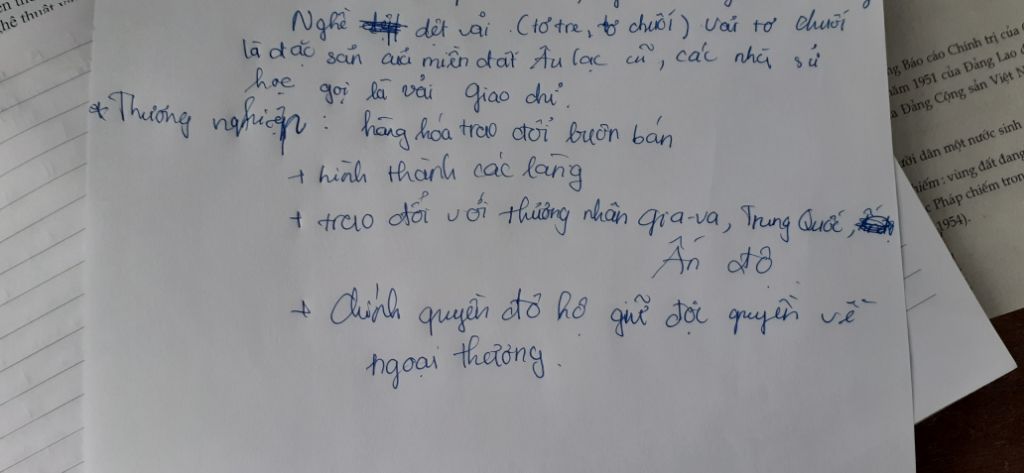 Nghề dệt vải (tơ tre, tơ chuối) vải tơ chuối
là đặc sản của miền đất Âu lạc cũ, các nhà sử
học gọi là vải giao chỉ.
* Thương nghiệp: hàng hóa trao đổi buôn bán
+ hình thành các làng
+ trao đổi với thương nhân gia-va, Trung Quốc,
Ấn độ
+ Chính quyền đô hộ giữ độc quyền về
ngoại thương.
g Báo cáo Chính trị của
ăm 1951 của Đảng Lao đ
a Đảng Cộng sản Việt N
ười dân một nước sinh
hiếm: vùng đất đang
c Pháp chiếm tron
1954).